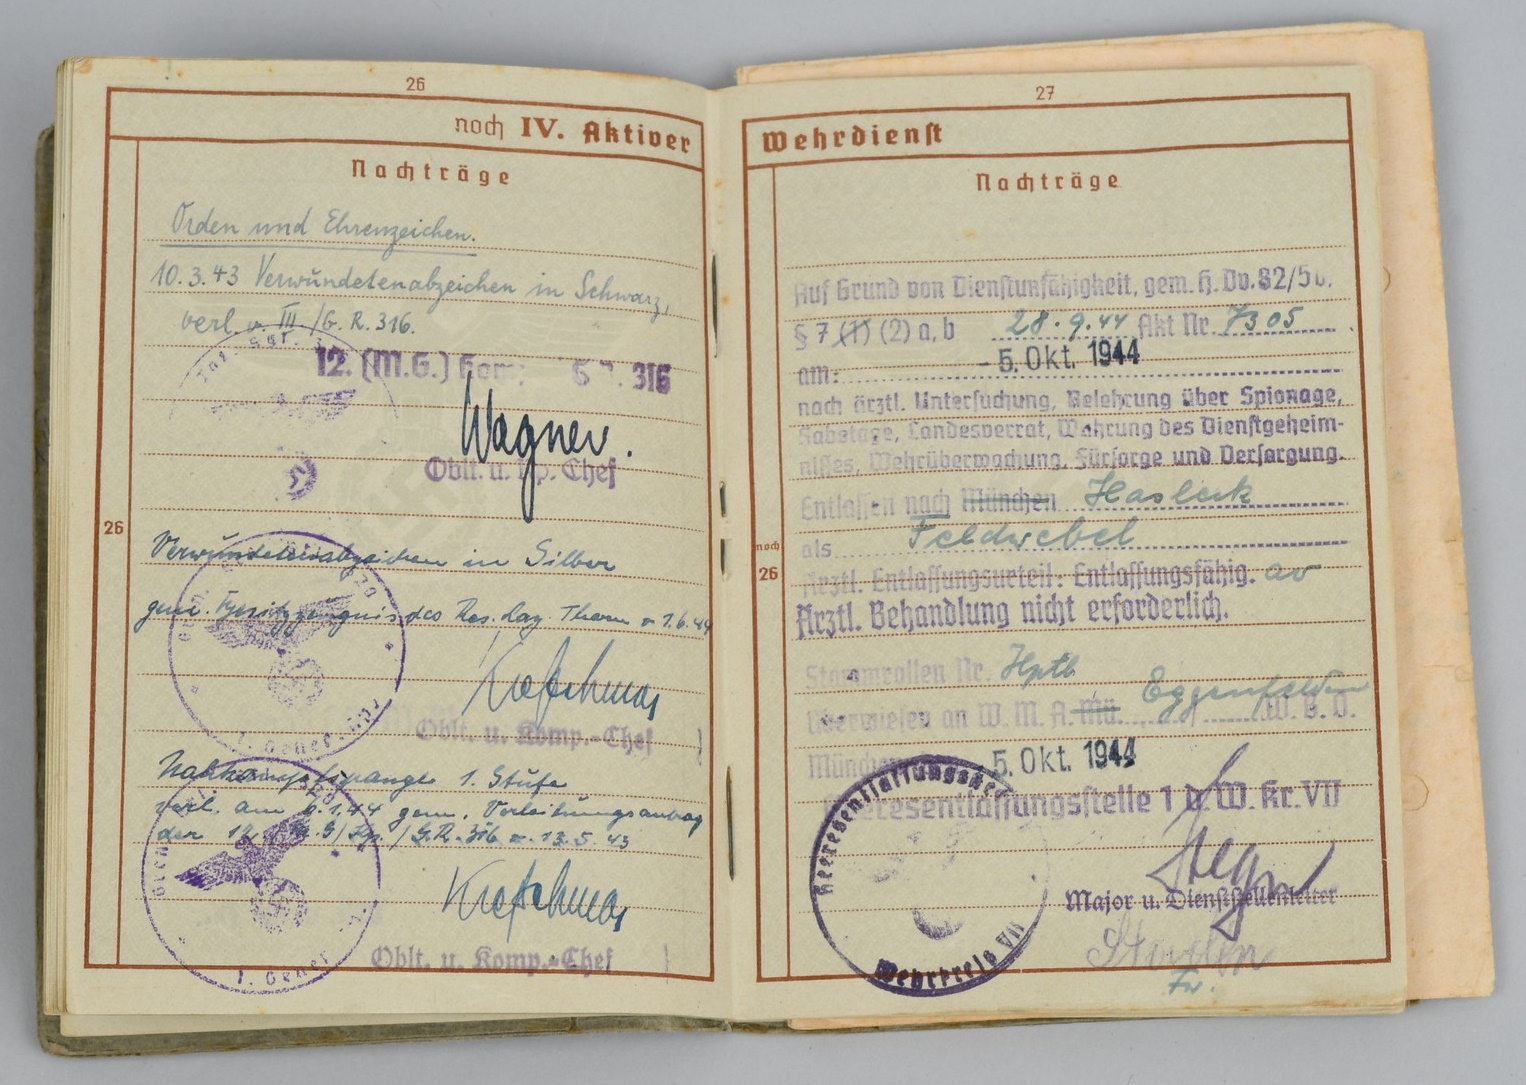 26
noch IV. Aktiver
Nachträge
Orden und Ehrenzeichen.
10.3.43 Verwundetenabzeichen in Schwarz,
verl. v. III/G.R. 316.
12. (M.G.) Kom. 316
Wagner.
Oblt. u. Kp. Chef
26
Verwundetenabzeichen in Silber
gem. Besitzzeugnis des Res. Laz. Thorn v 1.6.44
Oblt. u. Komp.-Chef
1. Gener.
Nahkampfspange 1. Stufe
verl. am 6.1.44 gem. Verleihungsantrag
der 12. M.G/Kp./G.R. 316 v. 13.5.43
Oblt. u. Komp.-Chef
1. Gener
27
Wehrdienst
Nachträge
Auf Grund von Dienstunfähigkeit, gem. H. Dv. 82/5b.
§ 7 (1) (2) a, b 28.9.44 Akt Nr. 7305
am: -5. Okt. 1944
nach ärztl. Untersuchung, Belehrung über Spionage,
Sabotage, Landesverrat, Wahrung des Dienstgeheim-
nisses, Wehrüberwachung, Fürsorge und Versorgung.
Entlassen nach München Hasleck
noch
als Feldwebel
26
Ärztl. Entlassungsurteil: Entlassungsfähig. av
Ärztl. Behandlung nicht erforderlich.
Stammrollen Nr. Hptb
Überwiesen an W. M. A. Mü. Eggenfelden W. B. O.
München 5. Okt. 1944
Heeresentlassungsstelle 1 d. W. Kr. VII
Major u. Dienststellenleiter
Heeresentlassungsstelle
Wehrkreis VII
Fw.